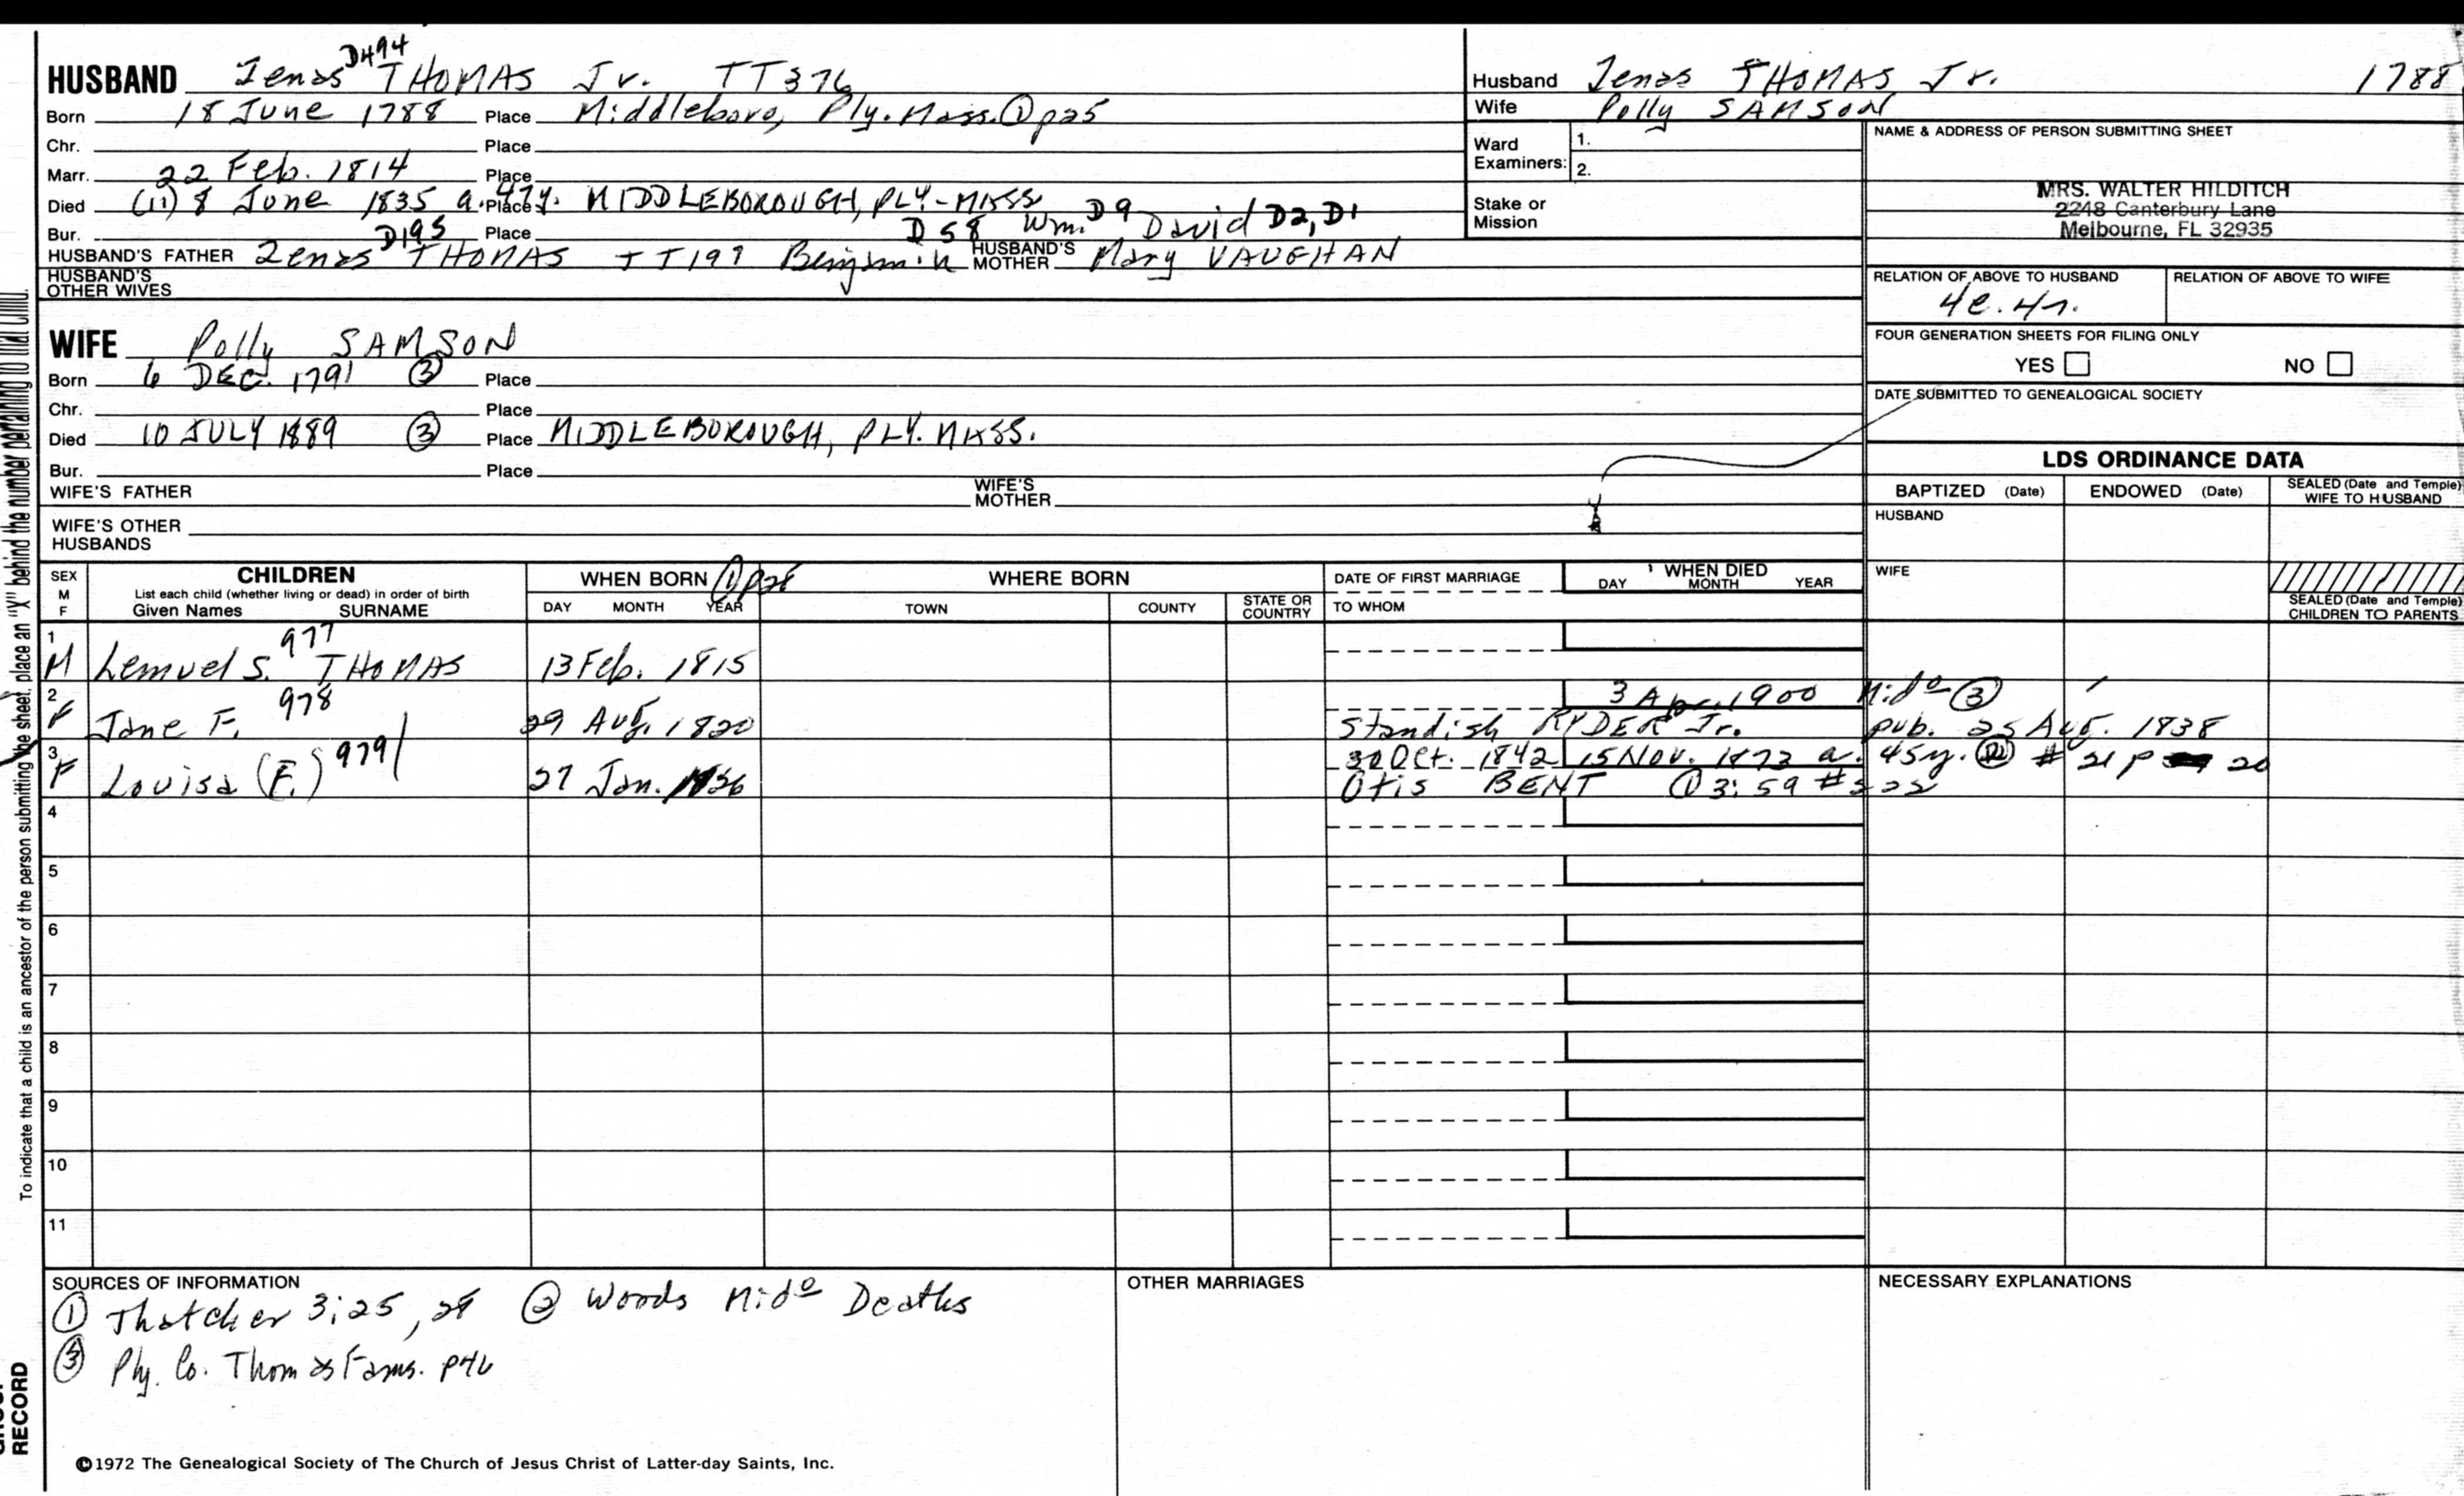 D494
HUSBAND Zenas THOMAS Jr. TT376
Born 18 June 1788 Place Middleboro, Ply. Mass. ① p25
Chr. Place
Marr. 22 Feb. 1814 Place
Died (11) 8 June 1835 a. 47y. Place MIDDLEBOROUGH, PLY-MASS
Bur. Place
D195 D58 Wm. D9 David D2, D1
HUSBAND'S FATHER Zenas THOMAS TT199 Benjamin HUSBAND'S MOTHER Mary VAUGHAN
HUSBAND'S OTHER WIVES
Husband Zenas THOMAS Jr. 1788
Wife Polly SAMSON
Ward Examiners: 1.
2.
Stake or Mission
NAME & ADDRESS OF PERSON SUBMITTING SHEET
MRS. WALTER HILDITCH
2248 Canterbury Lane
Melbourne, FL 32935
RELATION OF ABOVE TO HUSBAND RELATION OF ABOVE TO WIFE
4c.4r.
FOUR GENERATION SHEETS FOR FILING ONLY
YES NO
DATE SUBMITTED TO GENEALOGICAL SOCIETY
WIFE Polly SAMSON
Born 6 DEC. 1791 ③ Place
Chr. Place
Died 10 JULY 1889 ③ Place MIDDLEBOROUGH, PLY. MASS.
Bur. Place
WIFE'S FATHER WIFE'S MOTHER
WIFE'S OTHER HUSBANDS
LDS ORDINANCE DATA
BAPTIZED (Date) ENDOWED (Date) SEALED (Date and Temple) WIFE TO HUSBAND
HUSBAND
WIFE
SEALED (Date and Temple) CHILDREN TO PARENTS
SEX M F CHILDREN WHEN BORN ① p28 WHERE BORN DATE OF FIRST MARRIAGE WHEN DIED
List each child (whether living or dead) in order of birth DAY MONTH YEAR
Given Names SURNAME DAY MONTH YEAR TOWN COUNTY STATE OR COUNTRY TO WHOM
1 977
M Lemuel S. THOMAS 13 Feb. 1815
2 978 3 Apr. 1900 Mido ③
F Jane F. 29 Aug. 1820 Standish RYDER Jr. pub. 25 Aug. 1838
3 979 30 Oct. 1842 15 Nov. 1873 a. 45y. ② # 21 p 20
F Louisa (F.) 27 Jan. 1826 Otis BENT ① 3:59 #222
4
5
6
7
8
9
10
11
SOURCES OF INFORMATION
① Thatcher 3:25, 28 ② Woods Mido Deaths
③ Ply. Co. Thomas Fams. p46
OTHER MARRIAGES
NECESSARY EXPLANATIONS
©1972 The Genealogical Society of The Church of Jesus Christ of Latter-day Saints, Inc.
To indicate that a child is an ancestor of the person submitting the sheet, place an "X" behind the number pertaining to that child.
RECORD